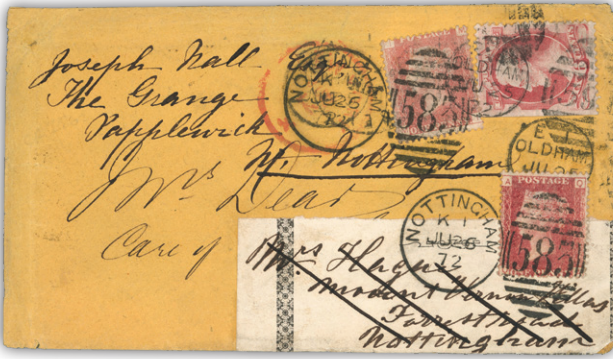 Joseph Nall Esq
The Grange
Papplewick
Nr. Nottingham
Mrs Dear
Care of
Mrs Hague
Mount Vernon Villas
Forest Road
Nottingham
NOTTINGHAM
JU 26
72
585
OLDHAM
72
E
OLDHAM
JU
POSTAGE
A O
585
NOTTINGHAM
K 1
JU 26
72